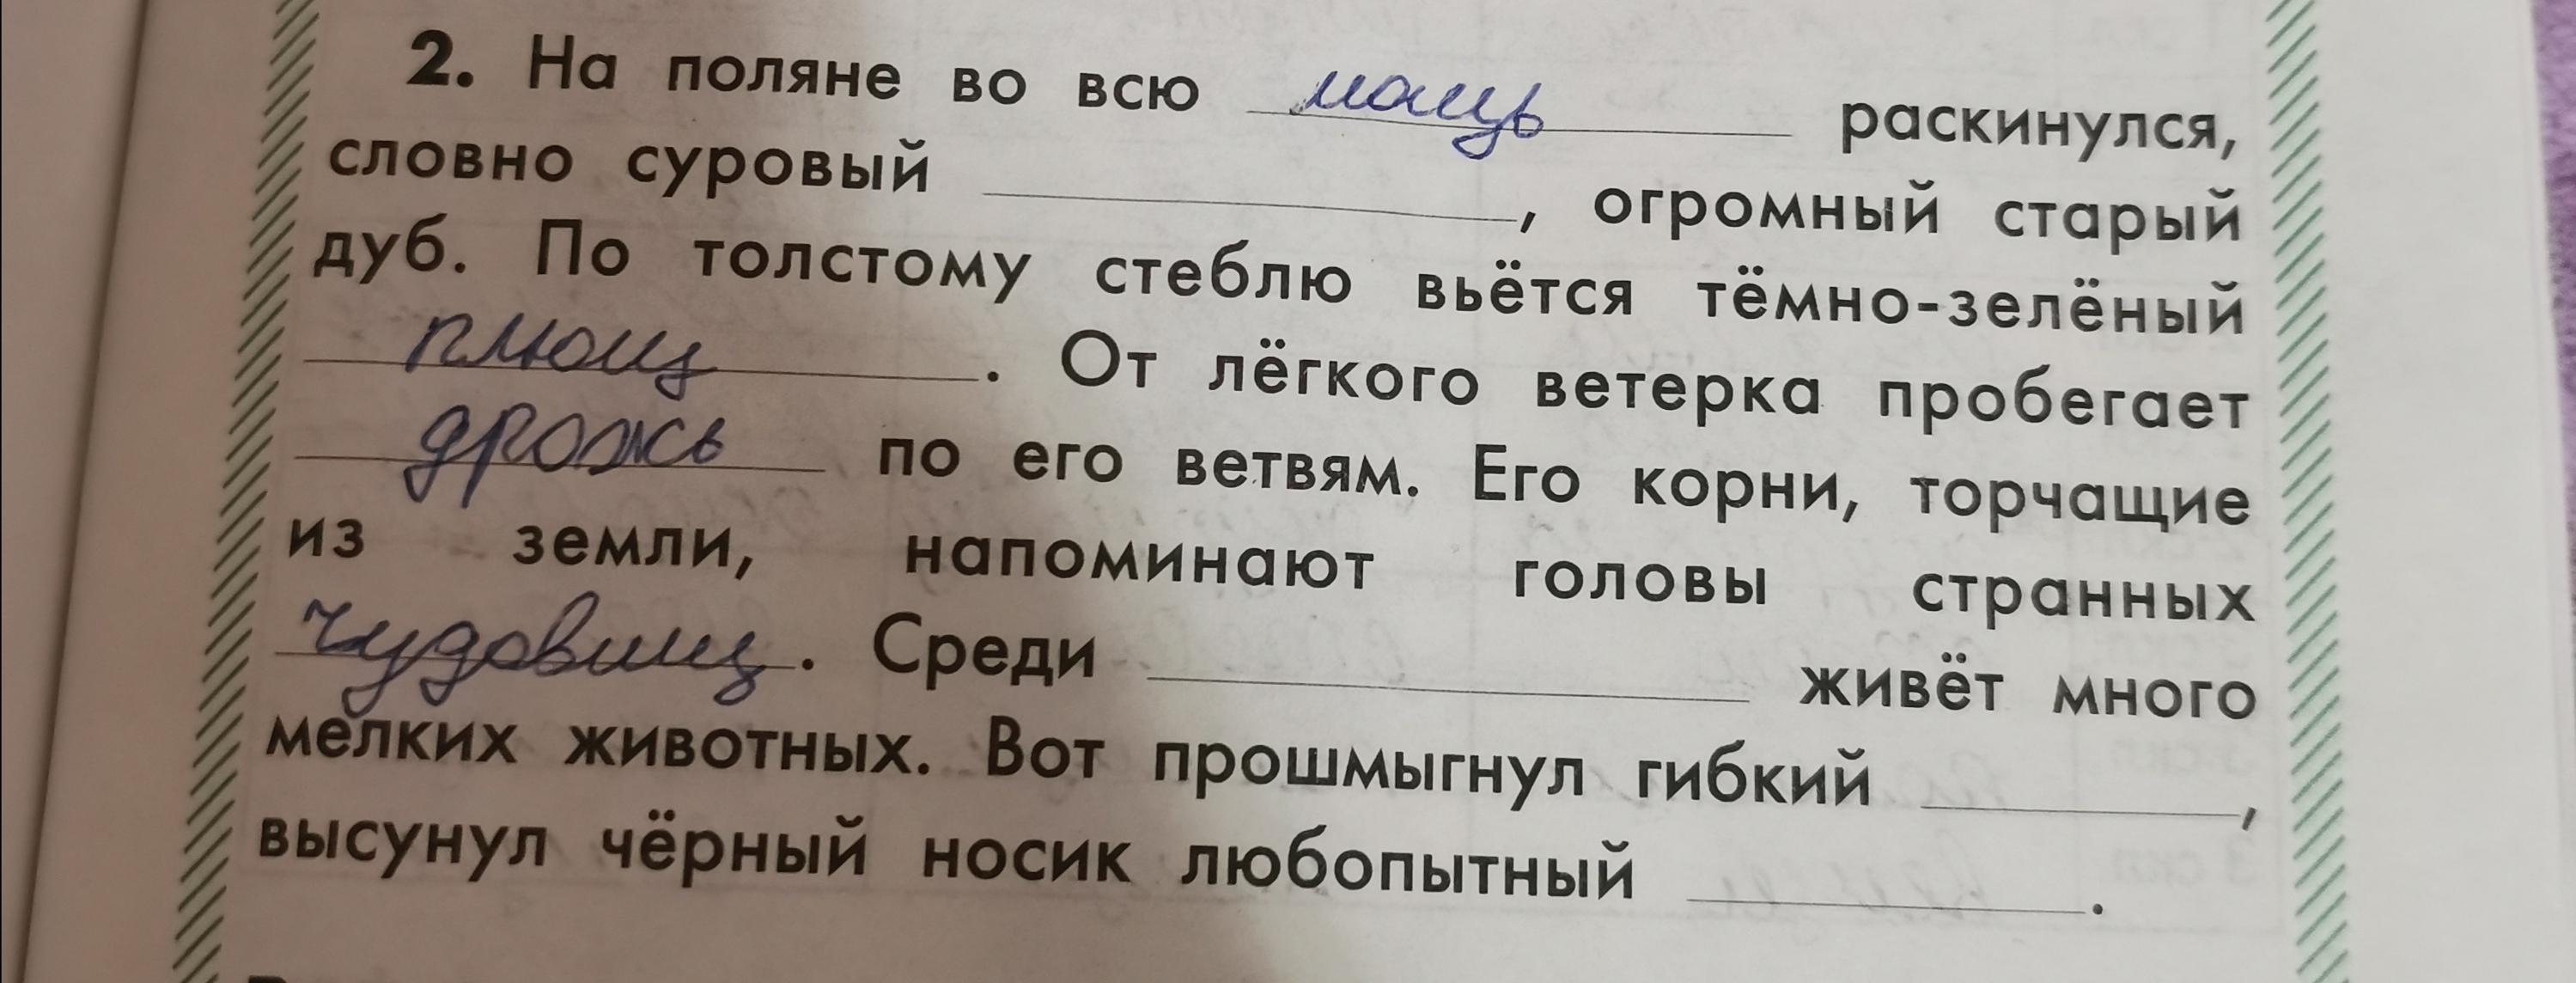 2. На поляне во всю мощь раскинулся,
словно суровый , огромный старый
дуб. По толстому стеблю вьётся тёмно-зелёный
плющ. От лёгкого ветерка пробегает
дрожь по его ветвям. Его корни, торчащие
из земли, напоминают головы странных
чудовищ. Среди живёт много
мелких животных. Вот прошмыгнул гибкий ,
высунул чёрный носик любопытный .